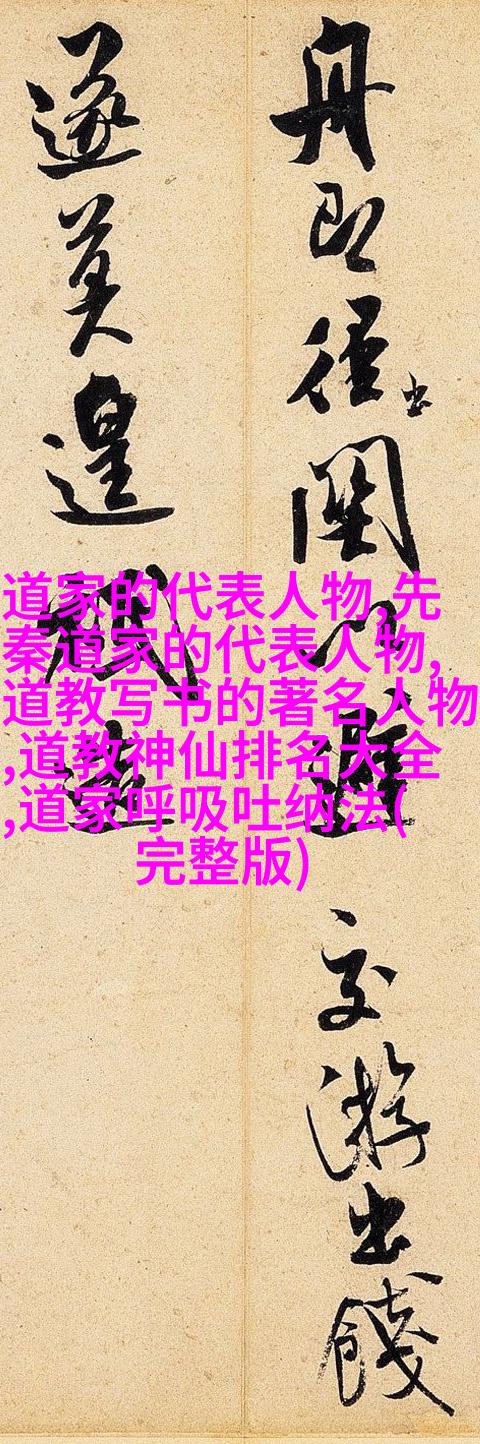 舟即徑出關以避交游出餞
遂莫遑造
道家的代表人物,先
秦道家的代表人物,
道教写书的著名人物
,道教神仙排名大全
,道家呼吸吐纳法(
完整版)